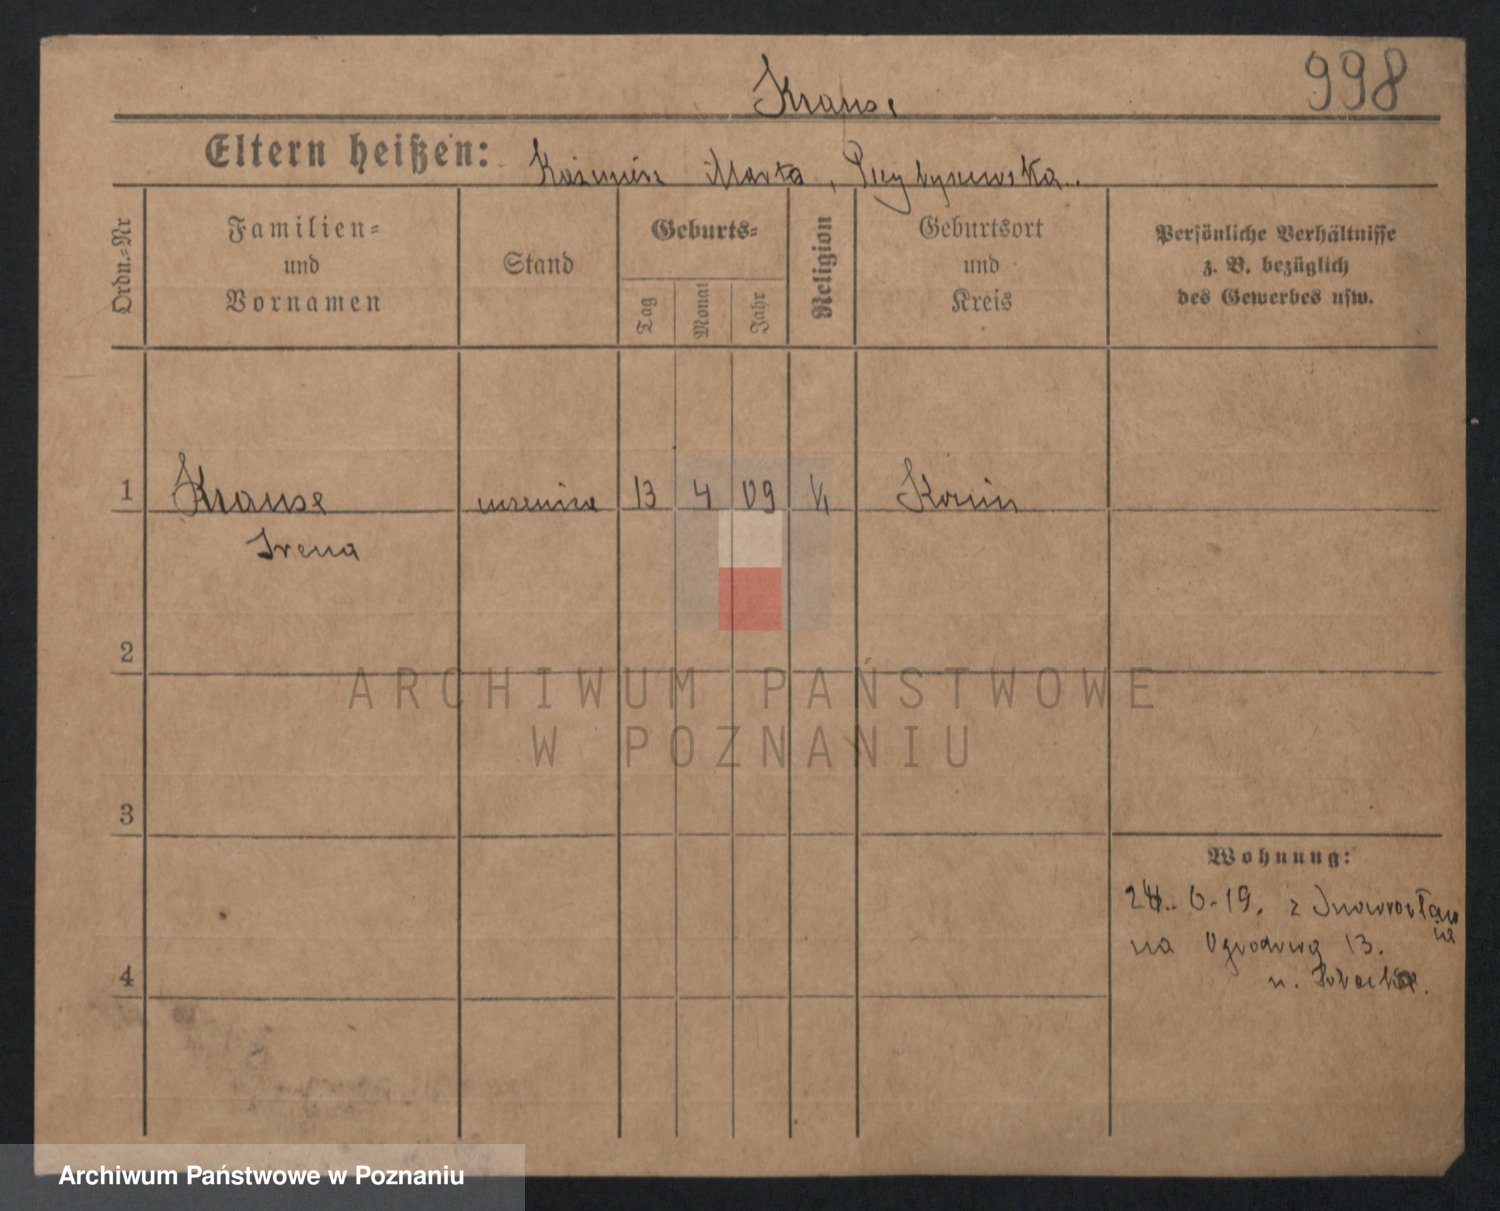 998
Krause
Eltern heißen: Kazimierz Marta, Przybyszewska.
Ordn.-Nr
Familien-
und
Vornamen
Stand
Geburts-
Tag
Monat
Jahr
Religion
Geburtsort
und
Kreis
Persönliche Verhältnisse
z. B. bezüglich
des Gewerbes usw.
1 Krause uczenica 13 4 09 Konin
Irena
2
ARCHIWUM PAŃSTWOWE
W POZNANIU
3
Wohnung:
24. 6-19. z Inowrocławia
na Ogrodową 13.
u.
4
Archiwum Państwowe w Poznaniu